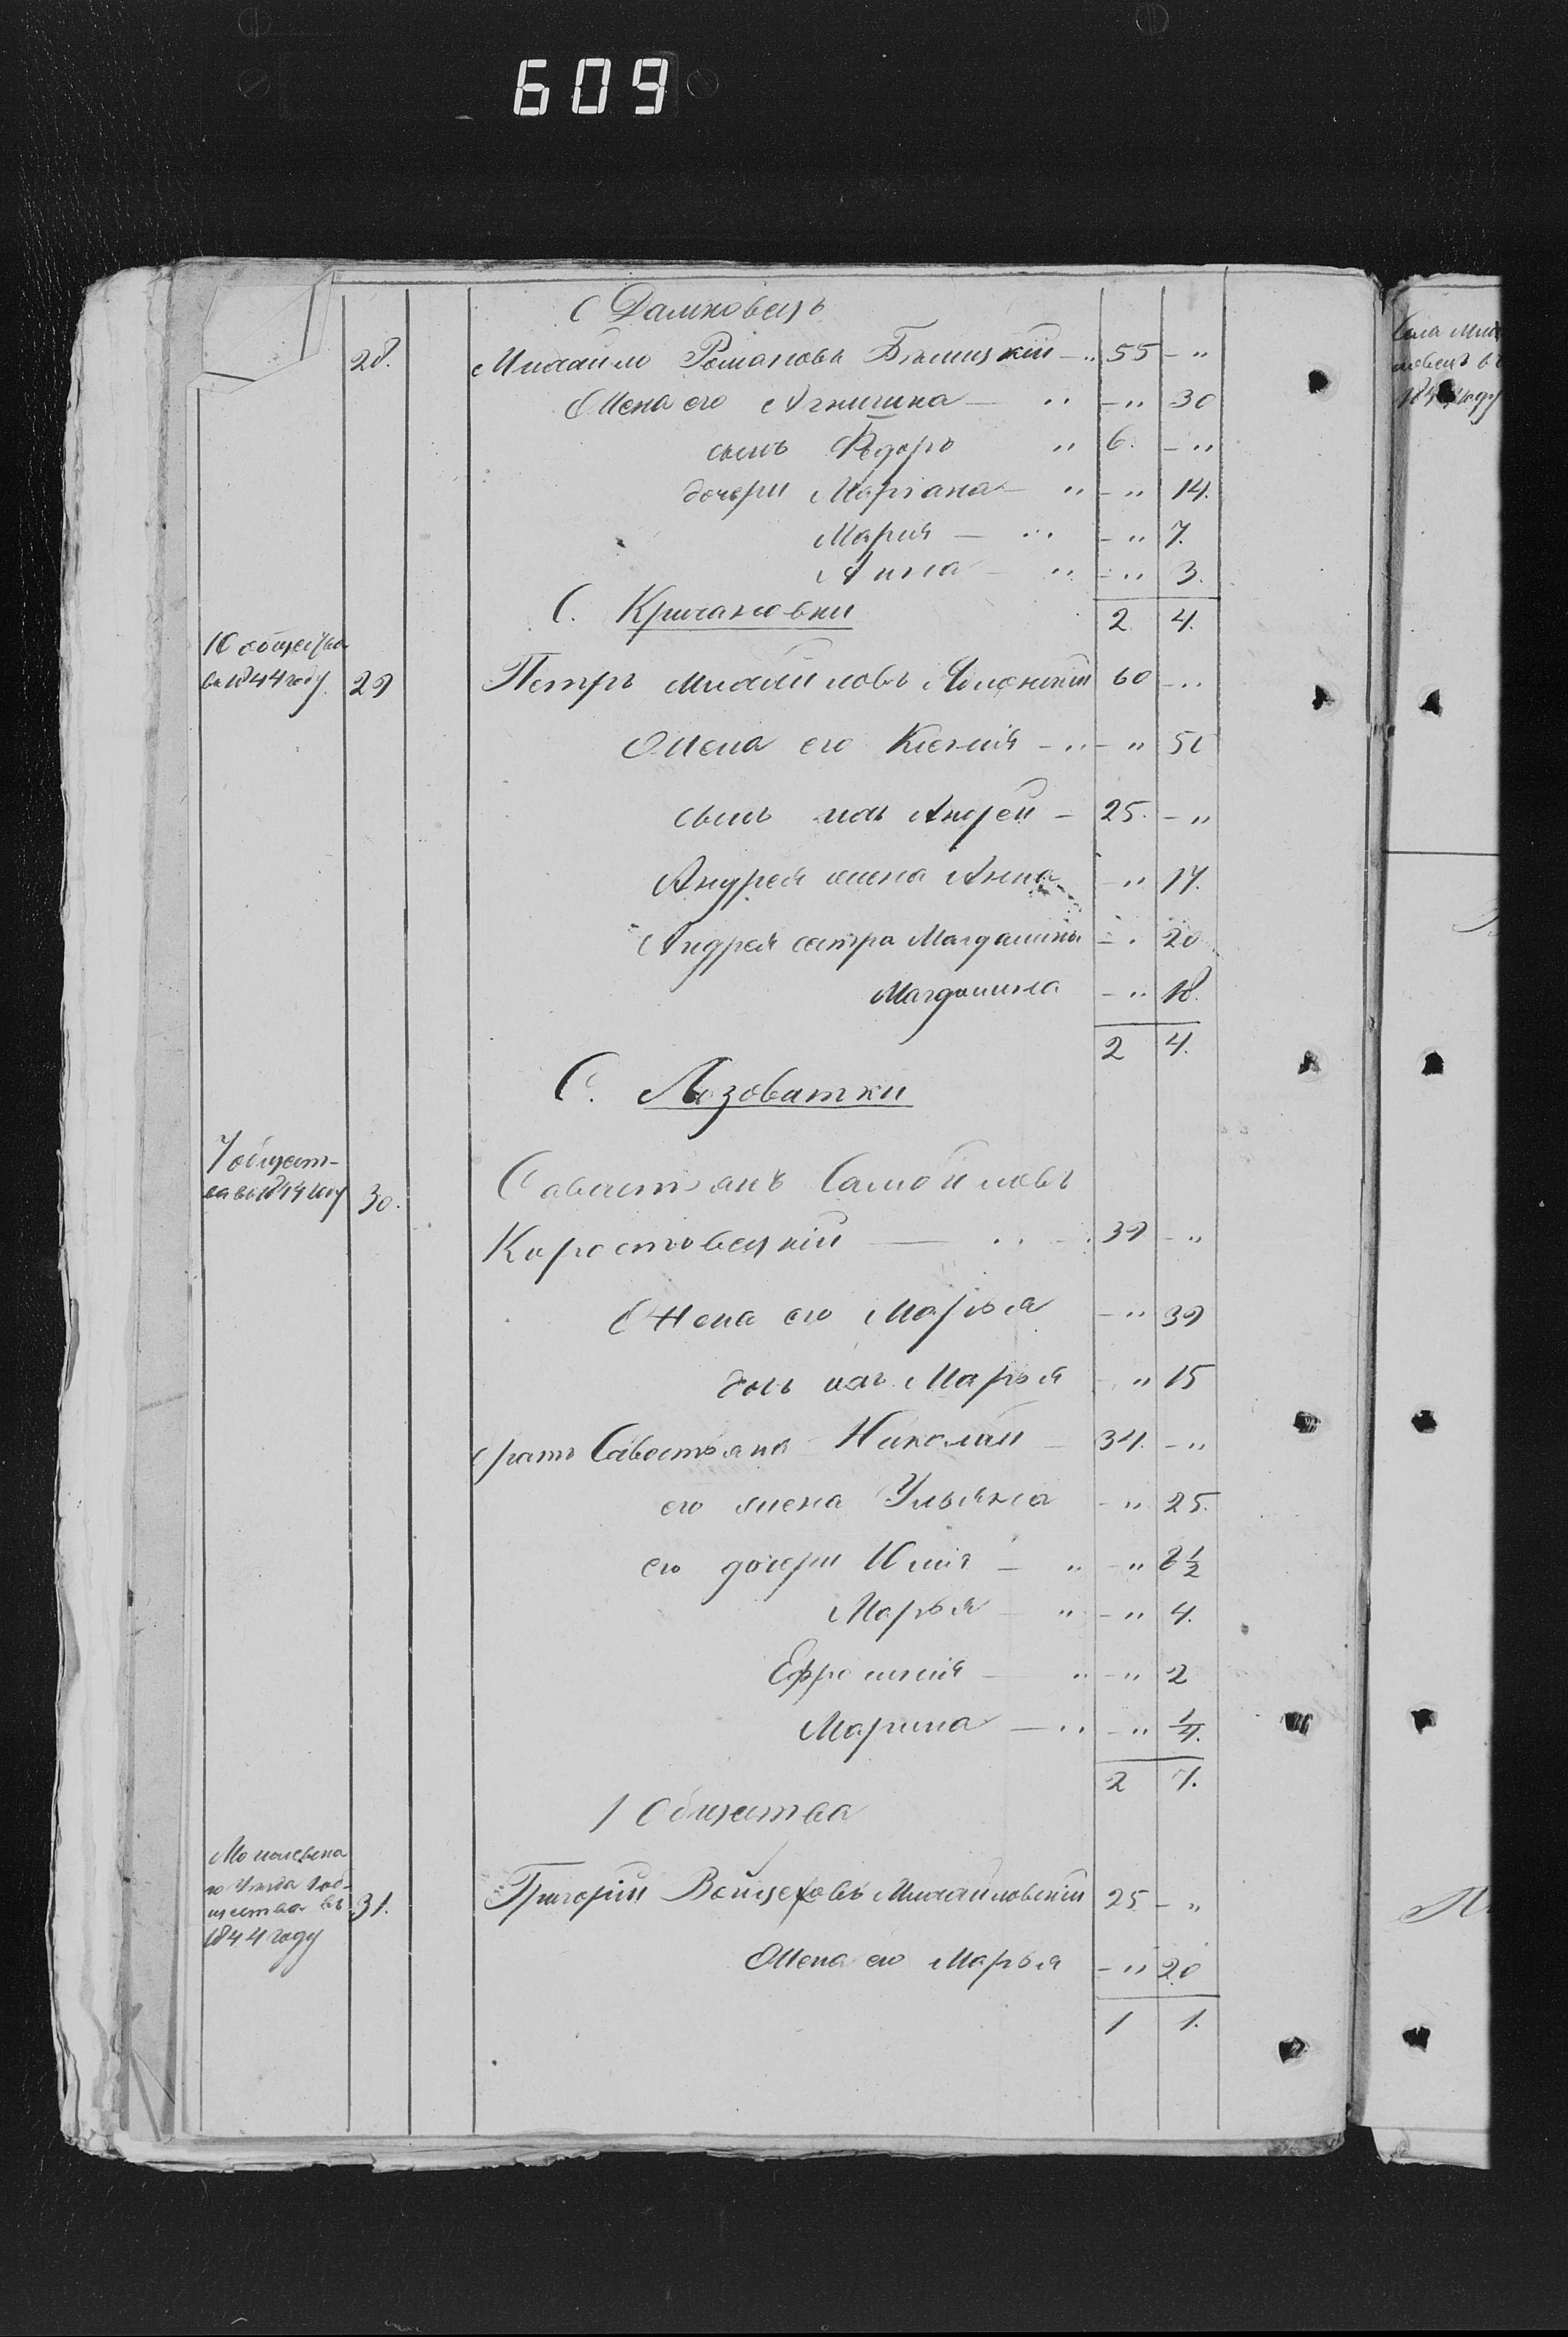 609
С Дашковецъ
28. Михайло Романовъ Бѣлицкій — „ 55 — „
Жена его Агнишка — „ — „ 30
сынъ Ѳедоръ „ 6. — „
дочери Маріана — „ — „ 14.
Марія — „ — „ 7.
Анна — „ — „ 3.
С. Кричановки 2 4.
10 общества
въ 1844 году 29 Петръ Михайловъ 60 — „
Жена его Ксенія — „ — „ 50
сынъ ихъ Андрей — 25. — „
Андрея жена Анна — „ 17.
Андрея сестра Магдалина — „ 20
Магдалина — „ 18.
2 4.
С. Лозоватки
7 общест-
ва въ 1844 году 30. Савастьянъ Самойловъ
Коростовецкій — „ 39 — „
Жена его Марья — „ 39
дочь ихъ Марья — „ 15
братъ Савостьяна Николай — 34. — „
его жена Ульяна — „ 25.
его дочери Юлія — „ — „ 8½
Марья — „ — „ 4.
Ефросинія — „ — „ 2
Марина — „ — „ ¼.
2 7.
1 Общества
Могилевска
го Уѣзда 1 об-
щества въ 31. Григорій Войцеховъ Михайловскій 25 — „
1844 году
Жена его Марья — „ 20
1 1.
Села
1844 году